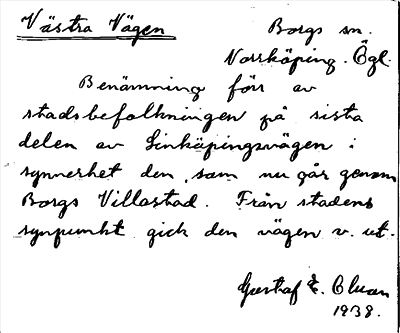 Västra Vägen
Borgs sn.
Norrköping. Ögl.
Benämning förr av
stadsbefolkningen på sista
delen av Linköpingsvägen i
synnerhet den, som nu går genom
Borgs Villastad. Från stadens
synpunkt gick den vägen v. ut.
Gustaf E.
1938.